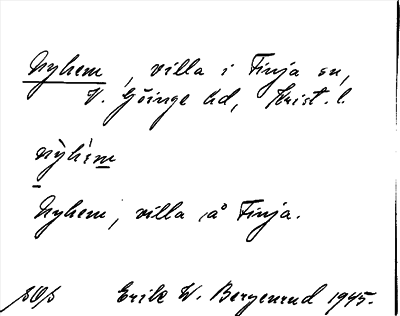 Nyhem, villa i Finja sn,
V. Göinge hd, Krist. l.
nỳhém
Nyhem, villa å Finja.
sOs Erik W. Bergenrud 1945.